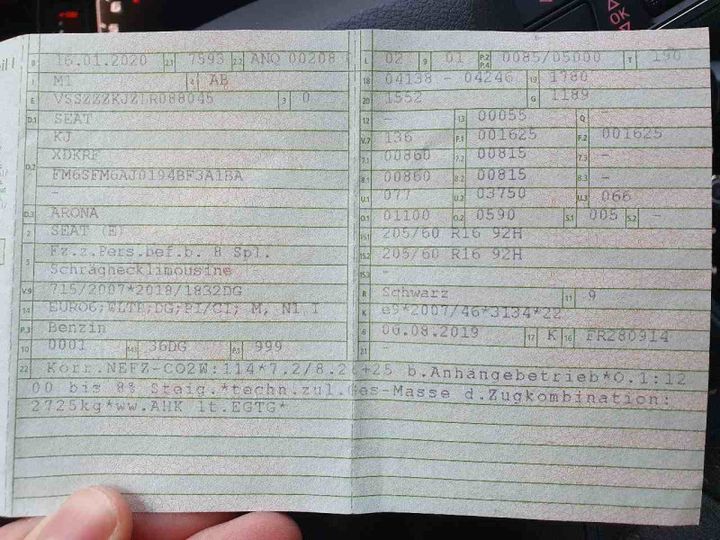 B 16.01.2020 2.1 7593 2.2 ANQ 00208
J M1 4 AB
E VSSZZZKJZLR088045 3 0
D.1 SEAT
KJ
D.2 XDKRF
FM6SFM6AJ0194BF3A1BA
-
D.3 ARONA
2 SEAT (E)
5 Fz.z.Pers.bef.b. 8 Spl.
Schräghecklimousine
V.9 715/2007*2018/1832DG
14 EURO6;WLTP;DG;PI/CI; M, N1 I
P.3 Benzin
10 0001 14.1 36DG P.1 999
L 02 9 01 P.2 P.4 0085/05000 T 190
18 04138 - 04246 19 1780
20 1552 G 1189
12 - 13 00055 Q -
V.7 136 F.1 001625 F.2 001625
7.1 00860 7.2 00815 7.3 -
8.1 00860 8.2 00815 8.3 -
U.1 077 U.2 03750 U.3 066
O.1 01100 O.2 0590 S.1 005 S.2 -
15.1 205/60 R16 92H
15.2 205/60 R16 92H
15.3 -
R Schwarz 11 9
K e9*2007/46*3134*22
6 06.08.2019 17 K 16 FR280914
21 -
22 Korr.NEFZ-CO2W:114*7.2/8.2:+25 b.Anhängebetrieb*O.1:12
00 bis 8% Steig.*techn.zul.Ges-Masse d.Zugkombination:
2725kg*ww.AHK lt.EGTG*
OK